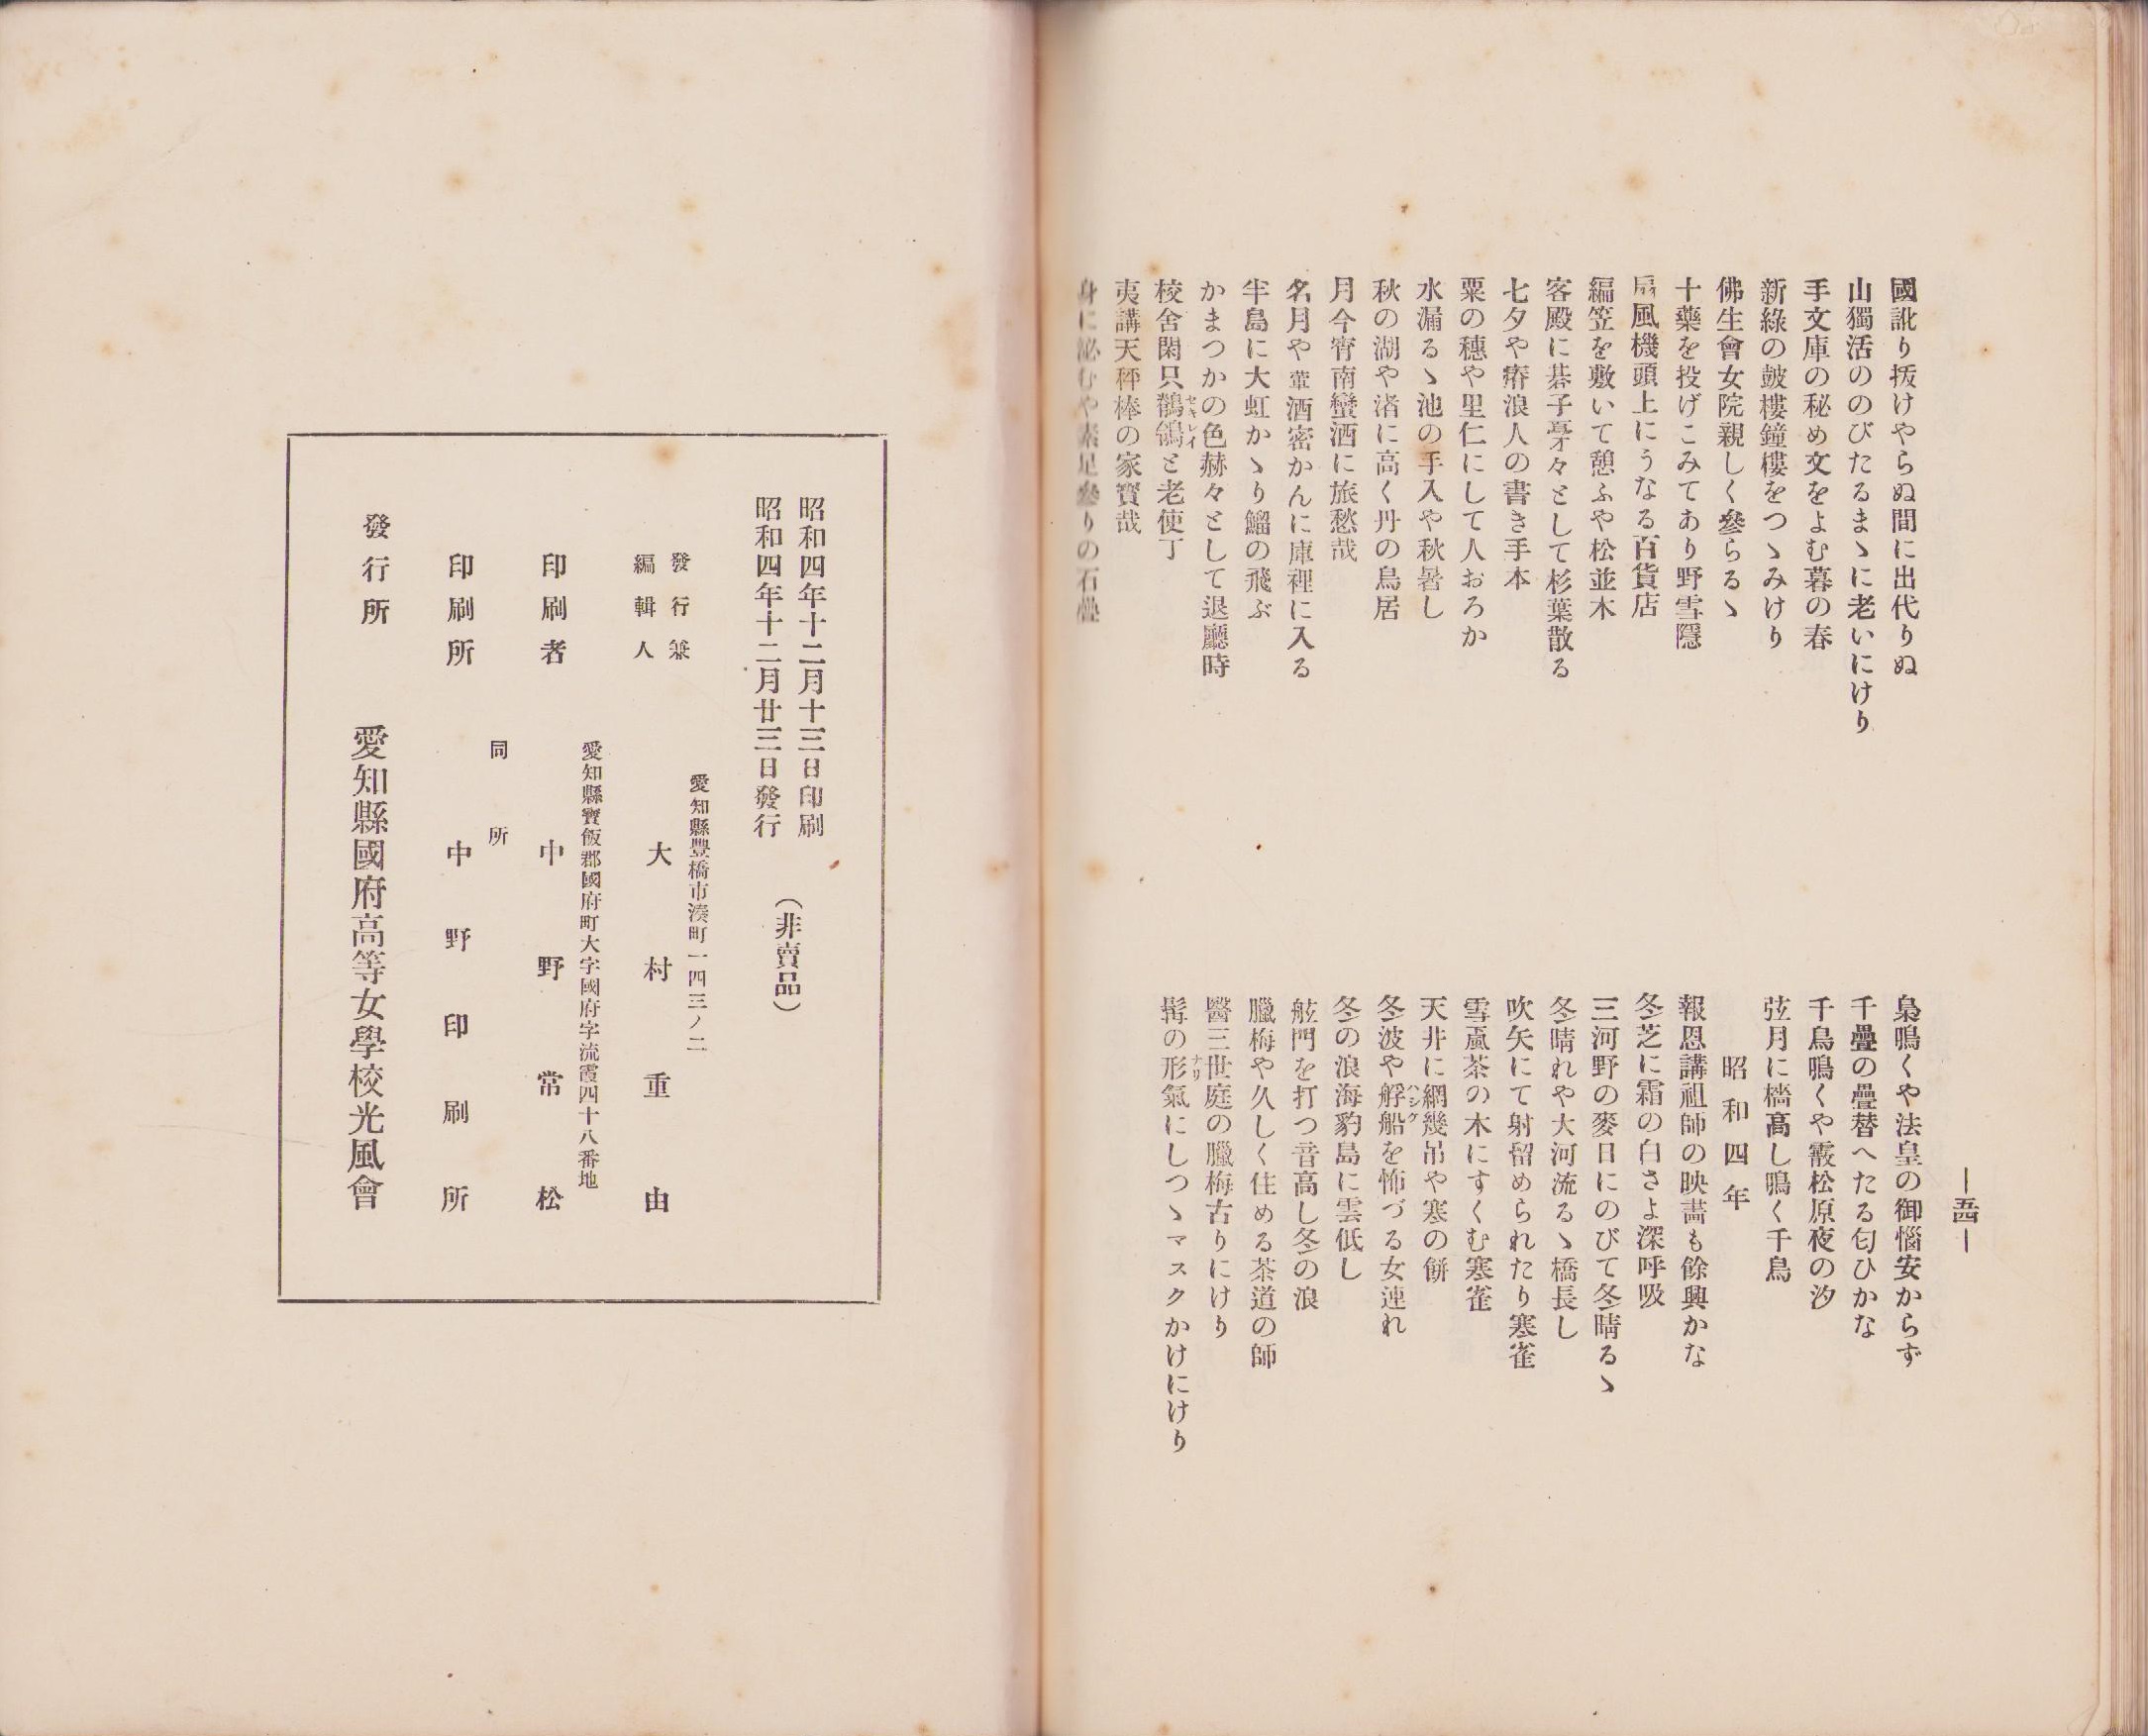 國訛り抜けやらぬ間に出代りぬ
山獨活ののびたるまゝに老いにけり
手文庫の秘め文をよむ暮の春
新綠の皷樓鐘樓をつゝみけり
佛生會女院親しく參らるゝ
十藥を投げこみてあり野雪隱
扇風機頭上にうなる百貨店
編笠を敷いて憩ふや松並木
客殿に碁子丁々として杉葉散る
七夕や瘠浪人の書き手本
粟の穗や里仁にして人おろか
水漏るゝ池の手入や秋暑し
秋の湖や渚に高く丹の鳥居
月今宵南蠻酒に旅愁哉
名月や葷酒密かんに庫裡に入る
半島に大虹かゝり鰡の飛ぶ
かまつかの色赫々として退廳時
校舍閑只鶺鴒と老使丁
セキレイ
夷講天秤棒の家寳哉
身に泌むや素足參りの石疊
梟鳴くや法皇の御惱安からず
千疊の疊替へたる匂ひかな
千鳥鳴くや霰松原夜の汐
弦月に檣高し鳴く千鳥
昭和四年
報恩講祖師の映畵も餘興かな
冬芝に霜の白さよ深呼吸
三河野の麥日にのびて冬晴るゝ
冬晴れや大河流るゝ橋長し
吹矢にて射留められたり寒雀
雪嵐茶の木にすくむ寒雀
天井に網幾吊や寒の餅
冬波や艀船を怖づる女連れ
ハシケ
冬の浪海豹島に雲低し
舷門を打つ音高し冬の浪
臘梅や久しく住める茶道の師
醫三世庭の臘梅古りにけり
髯の形氣にしつゝマスクかけにけり
ナリ
—五四—
昭和四年十二月十三日印刷
昭和四年十二月廿三日發行
（非賣品）
愛知縣豐橋市湊町一四三ノ二
發行兼
編輯人
大村重由
愛知縣寳飯郡國府町大字國府字流霞四十八番地
印刷者
中野常松
同所
印刷所
中野印刷所
發行所
愛知縣國府高等女學校光風會